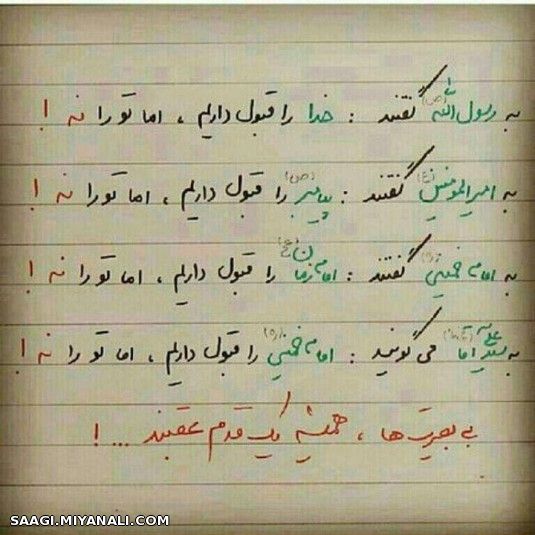 به رسول الله (ص) گفتند : خدا را قبول داریم ، اما تو را نه !
به امیرالمومنین (ع) گفتند : پیامبر (ص) را قبول داریم ، اما تو را نه !
به امام خمینی (ره) گفتند : امام زمان (عج) را قبول داریم ، اما تو را نه !
به سید علی آقا می گویند : امام خمینی (ره) را قبول داریم ، اما تو را نه !
بی بصیرت ها ، همیشه یک قدم عقبند ... !
SAAGI.MIYANALI.COM